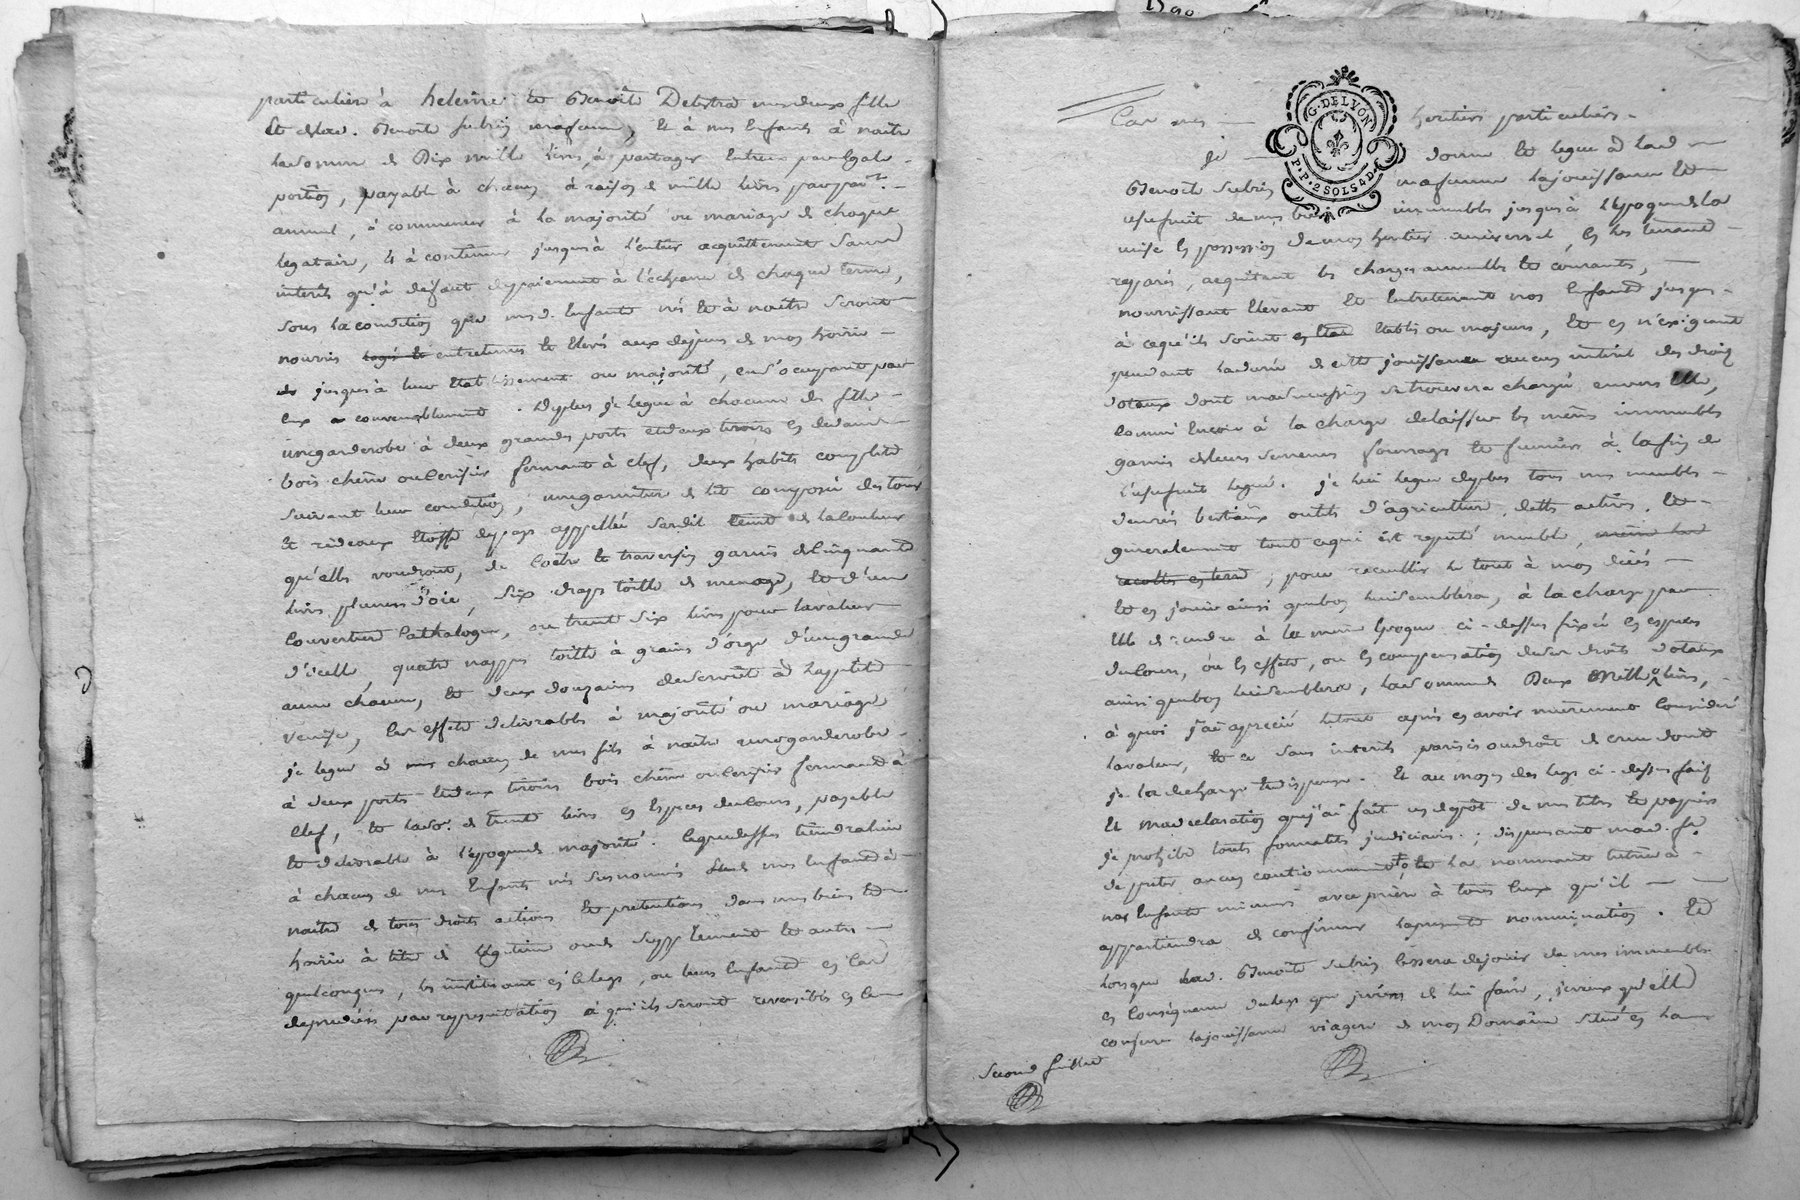 particuliere à heleine et Benoite Delestra mes deux filles
et de lad. Benoite Subrin ma femme, et à mes Enfants à naitre
la somme de Dix mille livres, à partager entreux par Egale
portion, payable à chacun à raison de mille livres par
annuel, à commencer à la majorité ou mariage de chaque
legataire, & à continuer jusques à l'entier acquittement sans
interets qu'à deffaut de payement à l'echeance de chaque terme,
sous la condition que mesd. Enfants nés et à naitre seront
nourris logés et entretenus et elevés aux depens de mon hoirie
jusques à leur Etablissement ou majorité, en s'ocupant par
eux convenablement. De plus je legue à chacune des filles
une garderobe à deux grandes portes et deux tiroirs en dedans
bois chêne ou cerisier fermant à clef, deux habits complets
suivant leur condition, une garniture de lit composée des tours
et rideaux etoffe du pays appellée sardit teinte de la couleur
qu'elles voudront, de coetre et traversin garnis de cinquante
livres plumes d'oie, six draps toille de menage, et d'une
couverture Cathalogne, ou trente six livres pour la valeur
d'icelle, quatre nappes toille à grains d'orge d'une grande
aune chacune, et deux douzaines de serviettes à la petite
venise, les effets delivrables à majorité ou mariage
je legue à chacun de mes fils à naitre une garderobe
à deux portes et deux tiroirs bois chêne ou cerisier fermant à
clef, et la so. de trente livres en Especes de cours, payable
et delivrable à l'epoque de majorité. lequel dessus tiendra lieu
à chacun de mes Enfants nés susnommés et de mes Enfants à
naitre de tous droits actions et pretentions dans mes biens et
hoirie à titre de legitime ou de supplement et autres
quelconques, les instituant en ce legs, ou leurs Enfants en cas
de predecès par representation à qui ils seront reversibles en ce
Cas mes heritiers particuliers.
G. DE LYON
P. P. 2 SOLS 4 D.
Je donne et legue à lad
Benoite Subrin ma femme la jouissance et
usufruit de mes biens immeubles jusques à l'epoque de la
mise en possession de mon heritier universel, en les tenant
reparés, acquitant les charges annuelles et courantes,
nourrissant elevant et entretenant nos Enfants jusques
à ce qu'ils soient en etat Etablis ou majeurs, et en n'exigeant
pendant la durée de cette jouissance aucun interet des droits
dotaux dont ma succession se trouvera chargée envers elle,
comme encore à la charge de laisser les mêmes immeubles
garnis de leurs semences fourrages et fumiers à la fin de
l'usufruit legué. je lui legue de plus tous mes meubles
denrés bestiaux outils d'agriculture dettes actives, et
generalement tout ce qui est reputé meuble, même les
recoltes en terre, pour recueillir le tout à mon décés
et en jouir ainsi que bon lui semblera, à la charge par
elle de rendre à la même Epoque ci-dessus fixée en especes
de cours, ou en effets, ou en compensation de ses droits dotaux
ainsi que bon lui semblera, la somme de Deux mille livres,
à quoi j'ai aprecié le tout après en avoir murement consideré
la valeur, et ce sans interets parisis ou droit de crue dont
je la decharge et dispense. Et au moyen des legs ci-dessus faits
Et ma declaration que j'ai fait un depôt de mes titres et papiers
je prohibe toutes formalités judiciaires; dispensant mad. fe.
de preter aucun cautionnement, et la nommant tutrice à
nos Enfants mineurs avec priere à tous ceux qu'il
appartiendra de confirmer la presente nomination. Et
lorsque lad. Benoite Subrin cessera de jouir de mes immeubles
en consequence du legs que je viens de lui faire, je veux qu'elle
conserve la jouissance viagere de mon Domaine situé en la
Second feuillet